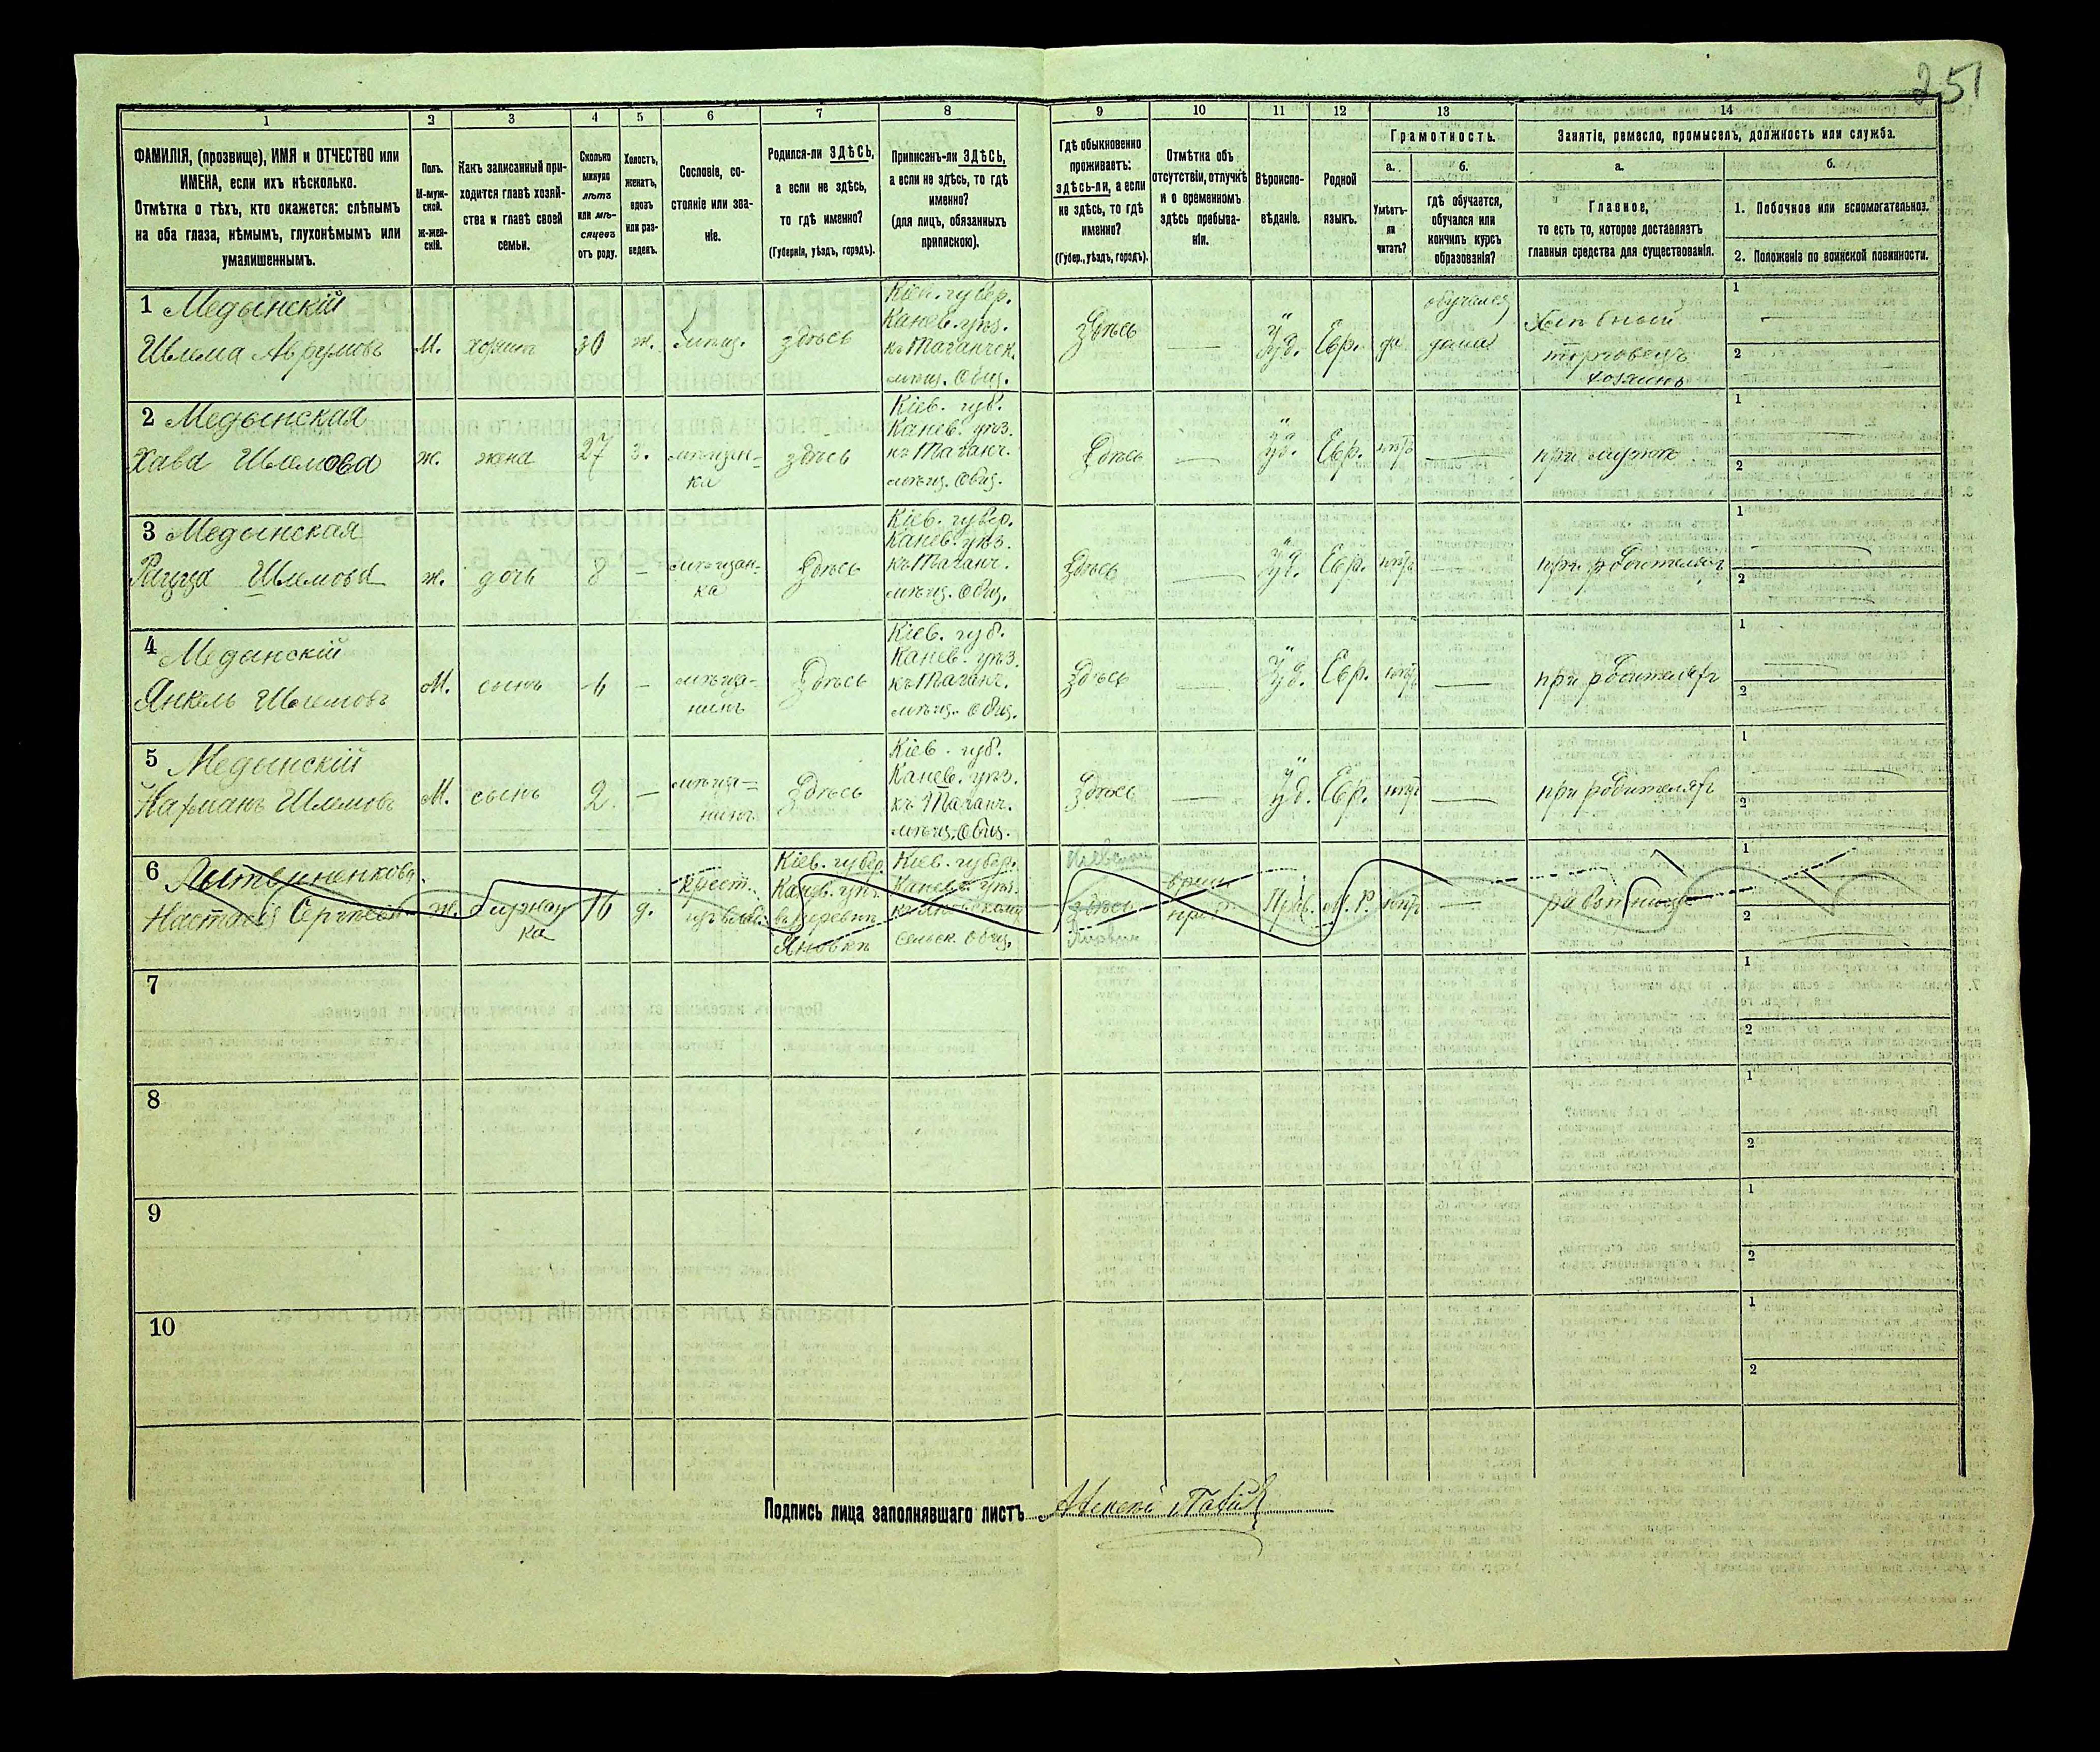 251
1 2 3 4 5 6 7 8 9 10 11 12 13 14
ФАМИЛІЯ, (прозвище), ИМЯ и ОТЧЕСТВО или
ИМЕНА, если ихъ нѣсколько.
Отмѣтка о тѣхъ, кто окажется: слѣпымъ
на оба глаза, нѣмымъ, глухонѣмымъ или
умалишеннымъ.
Полъ.
М-муж-
ской.
ж-жен-
скій.
Какъ записанный при-
ходится главѣ хозяй-
ства и главѣ своей
семьи.
Сколько
минуло
лѣтъ
или мѣ-
сяцевъ
отъ роду.
Холостъ,
женатъ,
вдовъ
или раз-
веденъ.
Сословіе, со-
стояніе или зва-
ніе.
Родился-ли ЗДѢСЬ,
а если не здѣсь,
то гдѣ именно?
(Губернія, уѣздъ, городъ).
Приписанъ-ли ЗДѢСЬ,
а если не здѣсь, то гдѣ
именно?
(для лицъ, обязанныхъ
припискою).
Гдѣ обыкновенно
проживаетъ:
здѣсь-ли, а если
не здѣсь, то гдѣ
именно?
(Губер., уѣздъ, городъ).
Отмѣтка объ
отсутствіи, отлучкѣ
и о временномъ
здѣсь пребыва-
ніи.
Вѣроиспо-
вѣданіе.
Родной
языкъ.
Грамотность.
а.
Умѣетъ-
ли
читать?
б.
гдѣ обучается,
обучался или
кончилъ курсъ
образованія?
Занятіе, ремесло, промыселъ, должность или служба.
а.
Главное,
то есть то, которое доставляетъ
главныя средства для существованія.
б.
1. Побочное или вспомогательное.
2. Положеніе по воинской повинности.
1 Медынскій
Шлема Аврумовъ
М.
30
ж.
здѣсь
Кіев. губер.
Канев. уѣз.
къ Таганчск.
мѣщ. Общ.
Здѣсь
Іуд.
Евр.
да
обучался
дома
Хлѣбный
торговецъ
хозяинъ
1
2
2 Медынская
Хава Шлемова
ж.
жена
27
з.
мѣщан-
ка
здѣсь
Кіев. губ.
Канев. уѣз.
къ Таганч.
мѣщ. Общ.
Здѣсь
Іуд.
Евр.
нѣтъ
при мужѣ
1
2
3 Медынская
Шлемова
ж.
дочь
8
мѣщан-
ка
Здѣсь
Кіев. губер.
Канев. уѣз.
къ Таганч.
мѣщ. Общ.
Здѣсь
Іуд.
Евр.
нѣтъ
при родителях
1
2
4 Медынскій
Янкель Шлемовъ
М.
сынъ
6
мѣща-
нинъ
Здѣсь
Кіев. губ.
Канев. уѣз.
къ Таганч.
мѣщ. Общ.
Здѣсь
Іуд.
Евр.
нѣтъ
при родителях
1
2
5 Медынскій
Нахманъ Шлемовъ
М.
сынъ
2
мѣща-
нинъ
Здѣсь
Кіев. губ.
Канев. уѣз.
къ Таганч.
мѣщ. Общ.
Здѣсь
Іуд.
Евр.
нѣтъ
при родителях
1
2
6
Настасія
ж.
служан
ка
16
д.
крест.
Кіев. губер.
Канев. уѣз.
въ деревнѣ
Яновкѣ
Кіев. губер.
Канев. уѣз.
къ Яновскому
сельск. Общ.
здѣсь
Прав.
М. Р.
нѣтъ
работница
1
2
7
1
2
8
1
2
9
1
2
10
1
2
Подпись лица заполнявшаго листъ